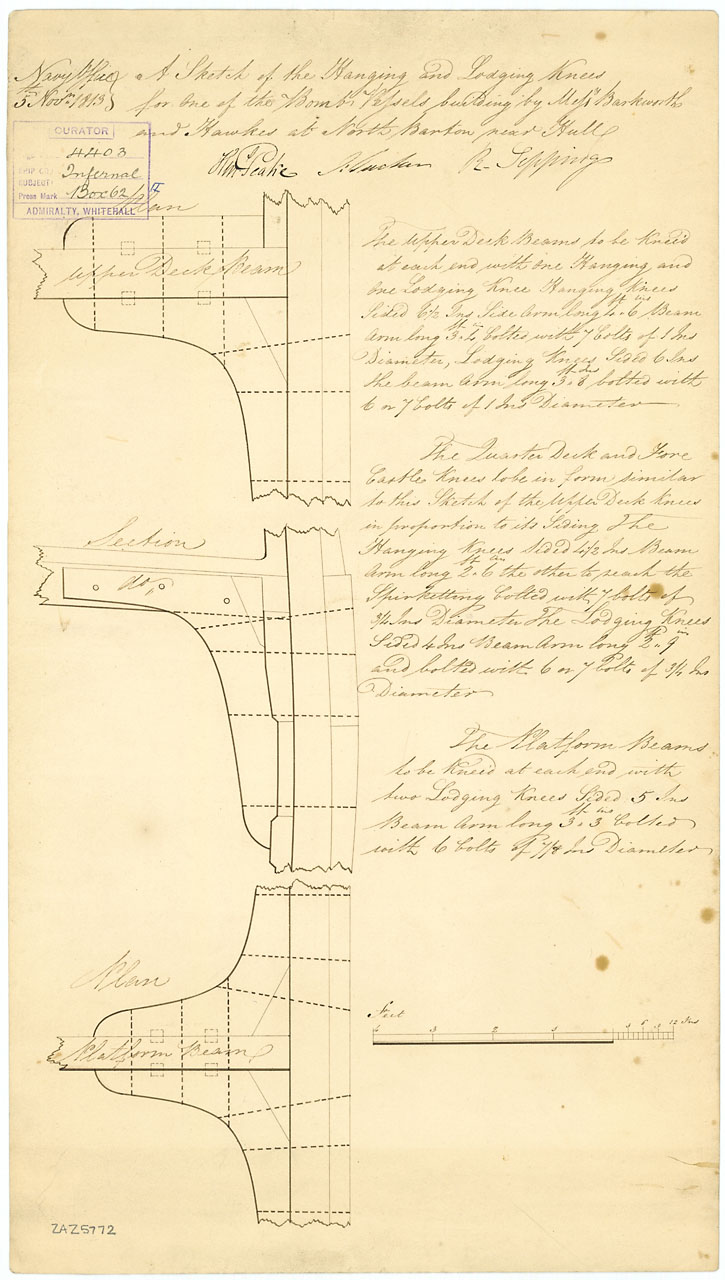 Navy Office
5th Novr. 1813
A Sketch of the Hanging and Lodging Knees
for one of the Bomb Vessels building by Messrs Barkworth
and Hawkes at North Barton near Hull
Hen Peake J. Tucker R. Seppings
CURATOR
4403
SHIP OR
Infernal
SUBJECT
Press Mark Box 62/
ADMIRALTY, WHITEHALL
Plan
Upper Deck Beam
The Upper Deck Beams to be Kneed
at each end with one Hanging and
one Lodging Knee Hanging Knees
Sided 6½ Ins Side Arm long 4ft 6ins Beam
Arm long 3ft bolted with 7 Bolts of 1 Ins
Diameter, Lodging Knees Sided 6 Ins
the beam Arm long 3ft 8ins bolted with
6 or 7 bolts of 1 Ins Diameter
The Quarter Deck and Fore
Castle Knees to be in form similar
to this Sketch of the Upper Deck Knees
in proportion to its Siding The
Hanging Knees Sided 4½ Ins Beam
Arm long 2ft 6ins the other to reach the
Spirketting bolted with 7 bolts of
¾ Ins Diameter The Lodging Knees
Sided 4 Ins Beam Arm long 2ft 9in
and bolted with 6 or 7 Bolts of ¾ Ins
Diameter
Section
do
The Platform Beams
to be Kneed at each end with
two Lodging Knees Sided 5 Ins
Beam Arm long 3ft 3ins bolted
with 6 bolts of 7/8 Ins Diameter
Plan
Platform Beam
Feet
3 2 1 3 6 9 12 Ins
ZAZ5772